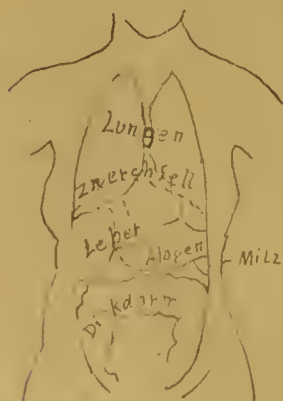 Lungen
Zwerchfell
Leber
Magen
Milz
Dickdarm